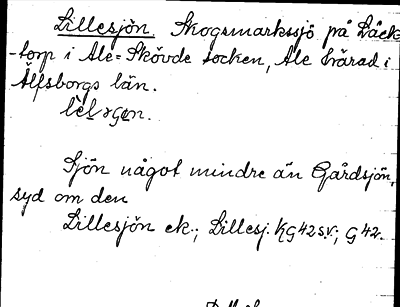 Lillesjön. Skogsmarkssjö på Bäck
-torp i Ale-Skövde socken, Ale härad i
Älfsborgs län.
Sjön något mindre än Gårdsjön,
syd om den
Lillesjön ek.; Lillesj. KG42sv.; G42.